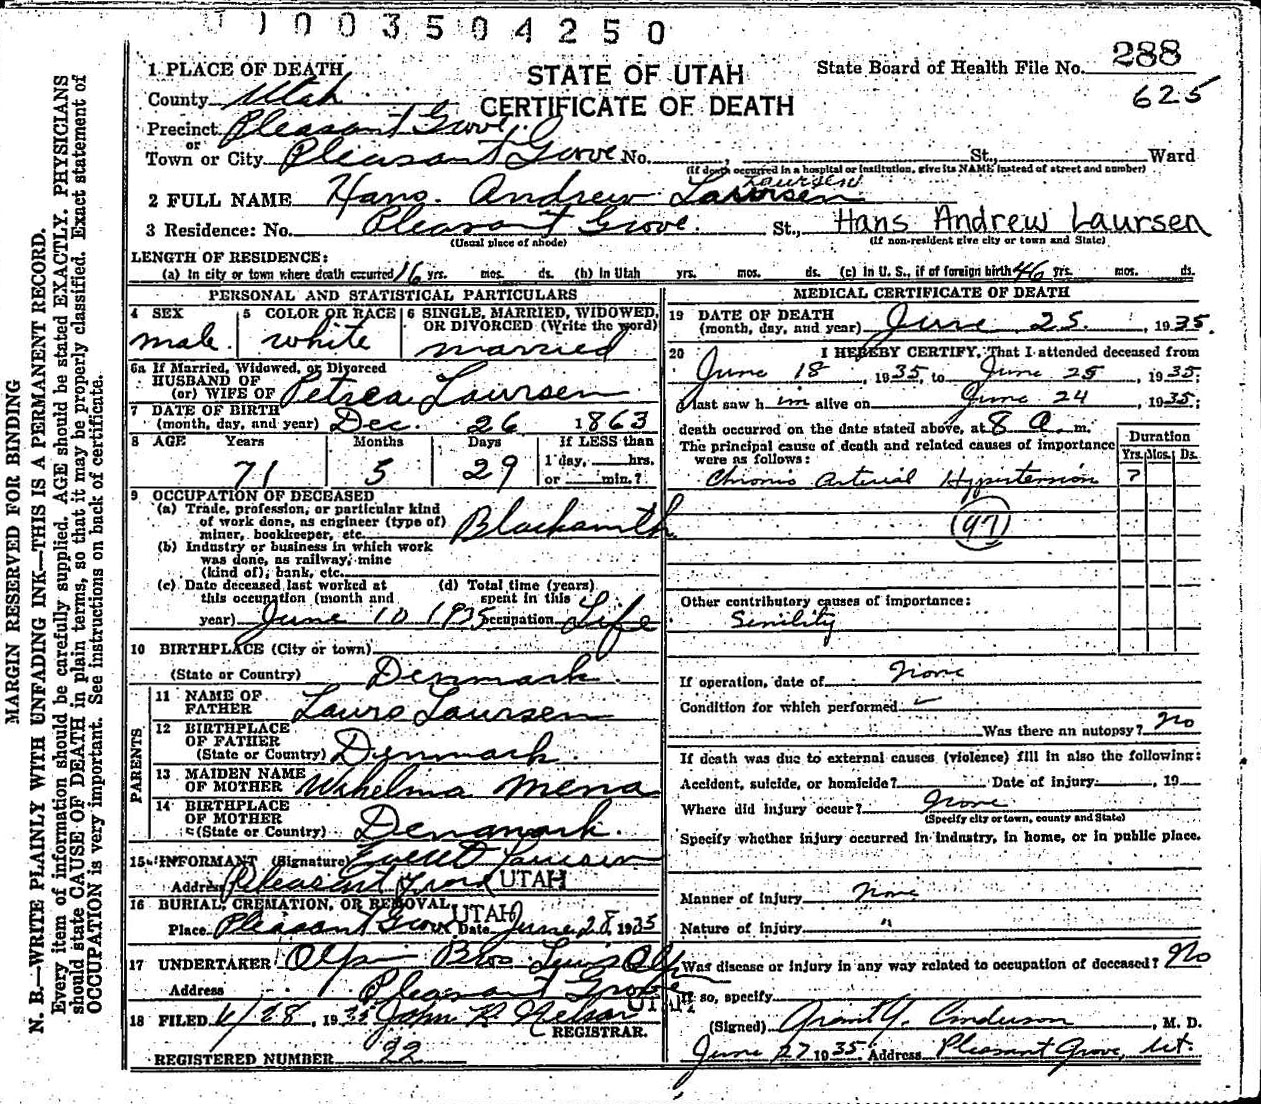 1003504250
288
1 PLACE OF DEATH STATE OF UTAH State Board of Health File No.
625
County Utah CERTIFICATE OF DEATH
Precinct Pleasant Grove
or
Town or City Pleasant Grove No. , St., Ward
(If death occurred in a hospital or institution, give its NAME instead of street and number)
Laursen
2 FULL NAME Hans Andrew
3 Residence: No. Pleasant Grove. St., Hans Andrew Laursen
(Usual place of abode) (If non-resident give city or town and State)
LENGTH OF RESIDENCE:
(a) In city or town where death occurred 16 yrs. mos. ds. (b) In Utah yrs. mos. ds. (c) In U. S., if of foreign birth 46 yrs. mos. ds.
PERSONAL AND STATISTICAL PARTICULARS
4 SEX 5 COLOR OR RACE 6 SINGLE, MARRIED, WIDOWED,
OR DIVORCED (Write the word)
male white married
6a If Married, Widowed, or Divorced
HUSBAND OF
(or) WIFE OF Petrea Laursen
7 DATE OF BIRTH
(month, day, and year) Dec. 26 1863
8 AGE Years Months Days If LESS than
1 day, hrs.
71 5 29 or min.?
9 OCCUPATION OF DECEASED
(a) Trade, profession, or particular kind
of work done, as engineer (type of)
miner, bookkeeper, etc. Blacksmith
(b) Industry or business in which work
was done, as railway, mine
(kind of), bank, etc.
(c) Date deceased last worked at (d) Total time (years)
this occupation (month and spent in this
year) June 10 1935 occupation Life
10 BIRTHPLACE (City or town)
(State or Country) Denmark.
PARENTS
11 NAME OF
FATHER Laurs Laursen
12 BIRTHPLACE
OF FATHER
(State or Country) Denmark.
13 MAIDEN NAME
OF MOTHER Wihelma Mena
14 BIRTHPLACE
OF MOTHER
(State or Country) Denmark.
15 INFORMANT (Signature) Everett Laursen
Address Pleasant Grove UTAH
16 BURIAL, CREMATION, OR REMOVAL UTAH
Place Pleasant Grove Date June 28, 1935
17 UNDERTAKER Olpin Bros Lewis Olpin
Address Pleasant Grove
UTAH
18 FILED 6/28, 1935 John R. Nelson
REGISTRAR.
REGISTERED NUMBER 22
MEDICAL CERTIFICATE OF DEATH
19 DATE OF DEATH
(month, day, and year) June 25, 1935.
20 I HEREBY CERTIFY, That I attended deceased from
June 18, 1935, to June 25, 1935;
I last saw him alive on June 24, 1935;
death occurred on the date stated above, at 8 A m.
The principal cause of death and related causes of importance
were as follows:
Duration
Yrs. Mos. Ds.
Chronic Arterial Hypertension ?
(97)
Other contributory causes of importance:
Senility
If operation, date of None
Condition for which performed
Was there an autopsy? No
If death was due to external causes (violence) fill in also the following:
Accident, suicide, or homicide? Date of injury , 19
Where did injury occur? None
(Specify city or town, county and State)
Specify whether injury occurred in industry, in home, or in public place.
Manner of injury None
Nature of injury "
Was disease or injury in any way related to occupation of deceased? No
If so, specify
(Signed) Grant Y. Anderson, M. D.
June 27 1935 Address Pleasant Grove, Ut.
MARGIN RESERVED FOR BINDING
N. B.—WRITE PLAINLY WITH UNFADING INK—THIS IS A PERMANENT RECORD.
Every item of information should be carefully supplied. AGE should be stated EXACTLY. PHYSICIANS
should state CAUSE OF DEATH in plain terms, so that it may be properly classified. Exact statement of
OCCUPATION is very important. See instructions on back of certificate.